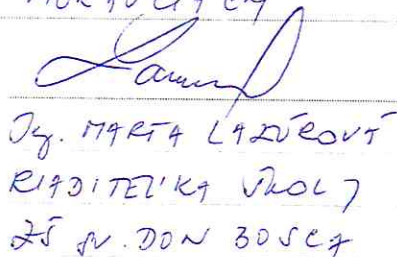 Ing. MARTA LAZÚROVÁ
RIADITEĽKA ŠKOLY
ZŠ sv. DON BOSCA